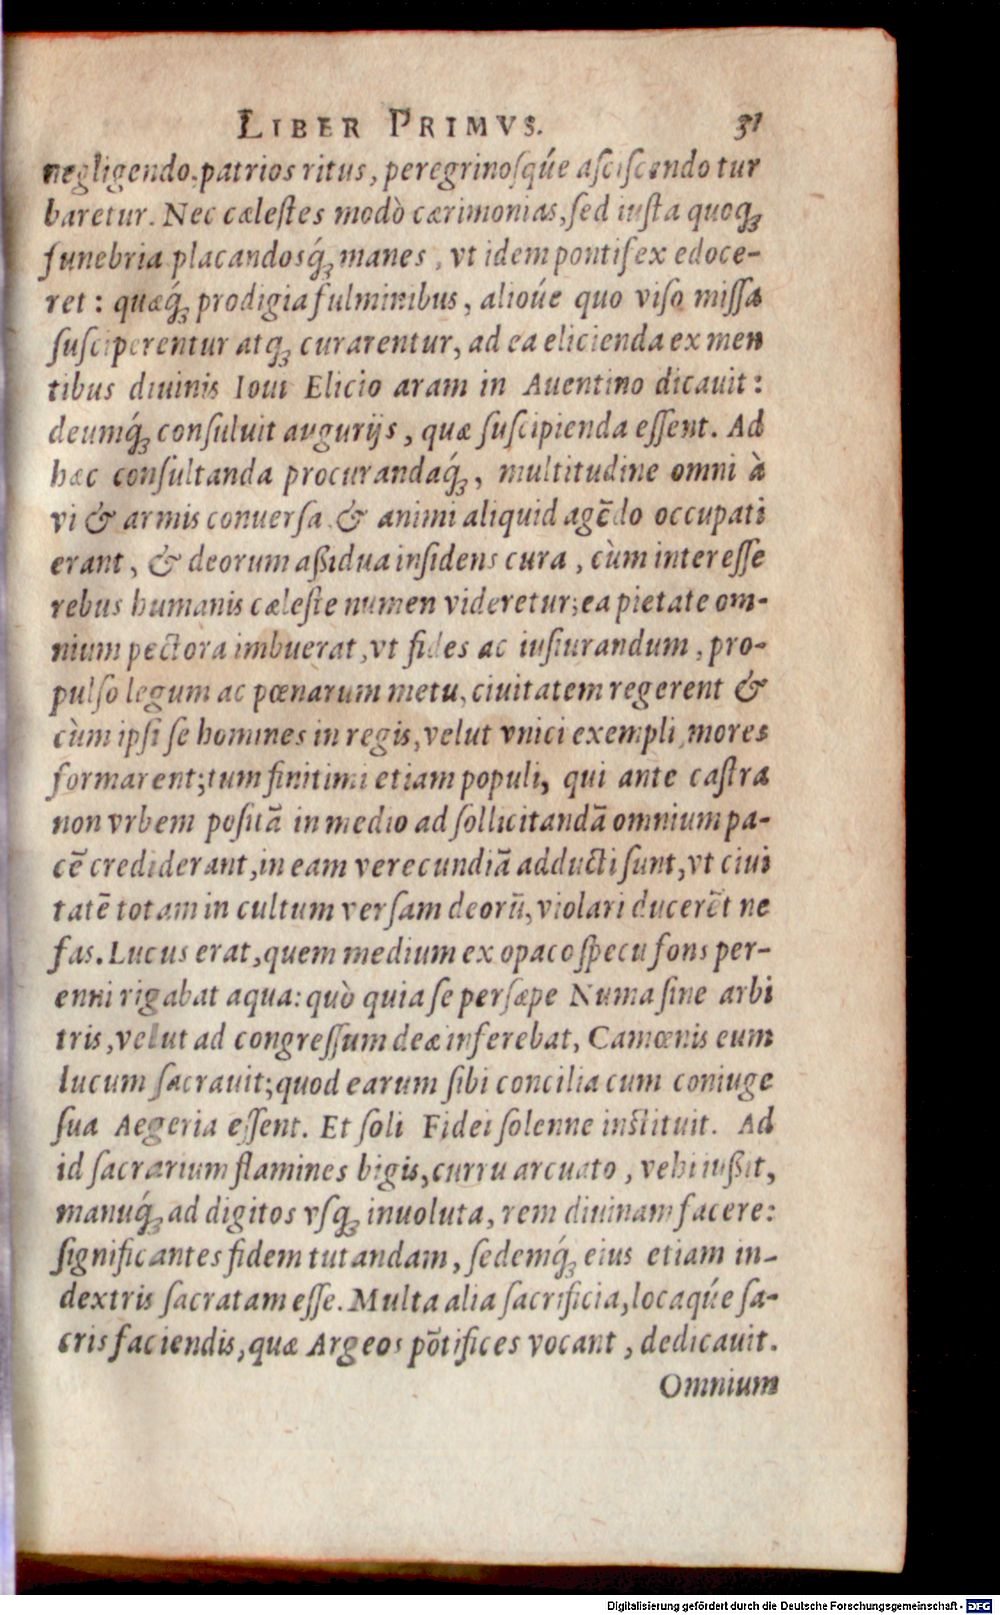 LIBER PRIMVS. 31
negligendo patrios ritus, peregrinosq́ue asciscendo tur
baretur. Nec cælestes modò cærimonias, sed iusta quoq;
funebria placandosq́; manes, vt idem pontifex edoce-
ret: quæq́; prodigia fulminibus, alioúe quo viso missa
susciperentur atq; curarentur, ad ea elicienda ex men
tibus diuinis Ioui Elicio aram in Auentino dicauit:
deumq́; consuluit augurijs, quæ suscipienda essent. Ad
hæc consultanda procurandaq́;, multitudine omni à
vi & armis conuersa & animi aliquid agẽdo occupati
erant, & deorum aßidua insidens cura, cùm interesse
rebus humanis cæleste numen videretur; ea pietate om-
nium pectora imbuerat, vt fides ac iusiurandum, pro-
pulso legum ac pœnarum metu, ciuitatem regerent &
cùm ipsi se homines in regis, velut vnici exempli, mores
formarent; tum finitimi etiam populi, qui ante castra
non vrbem positã in medio ad sollicitandã omnium pa-
cẽ crediderant, in eam verecundiã adducti sunt, vt ciui
tatẽ totam in cultum versam deorũ, violari ducerẽt ne
fas. Lucus erat, quem medium ex opaco specu fons per-
enni rigabat aqua: quò quia se persæpe Numa sine arbi
tris, velut ad congressum deæ inferebat, Camœnis eum
lucum sacrauit; quod earum sibi concilia cum coniuge
sua Aegeria essent. Et soli Fidei solenne instituit. Ad
id sacrarium flamines bigis, curru arcuato, vehi iußit,
manuq́; ad digitos vsq; inuoluta, rem diuinam facere:
significantes fidem tutandam, sedemq́; eius etiam in-
dextris sacratam esse. Multa alia sacrificia, locaq́ue sa-
cris faciendis, quæ Argeos põtifices vocant, dedicauit.
Omnium
Digitalisierung gefördert durch die Deutsche Forschungsgemeinschaft - DFG